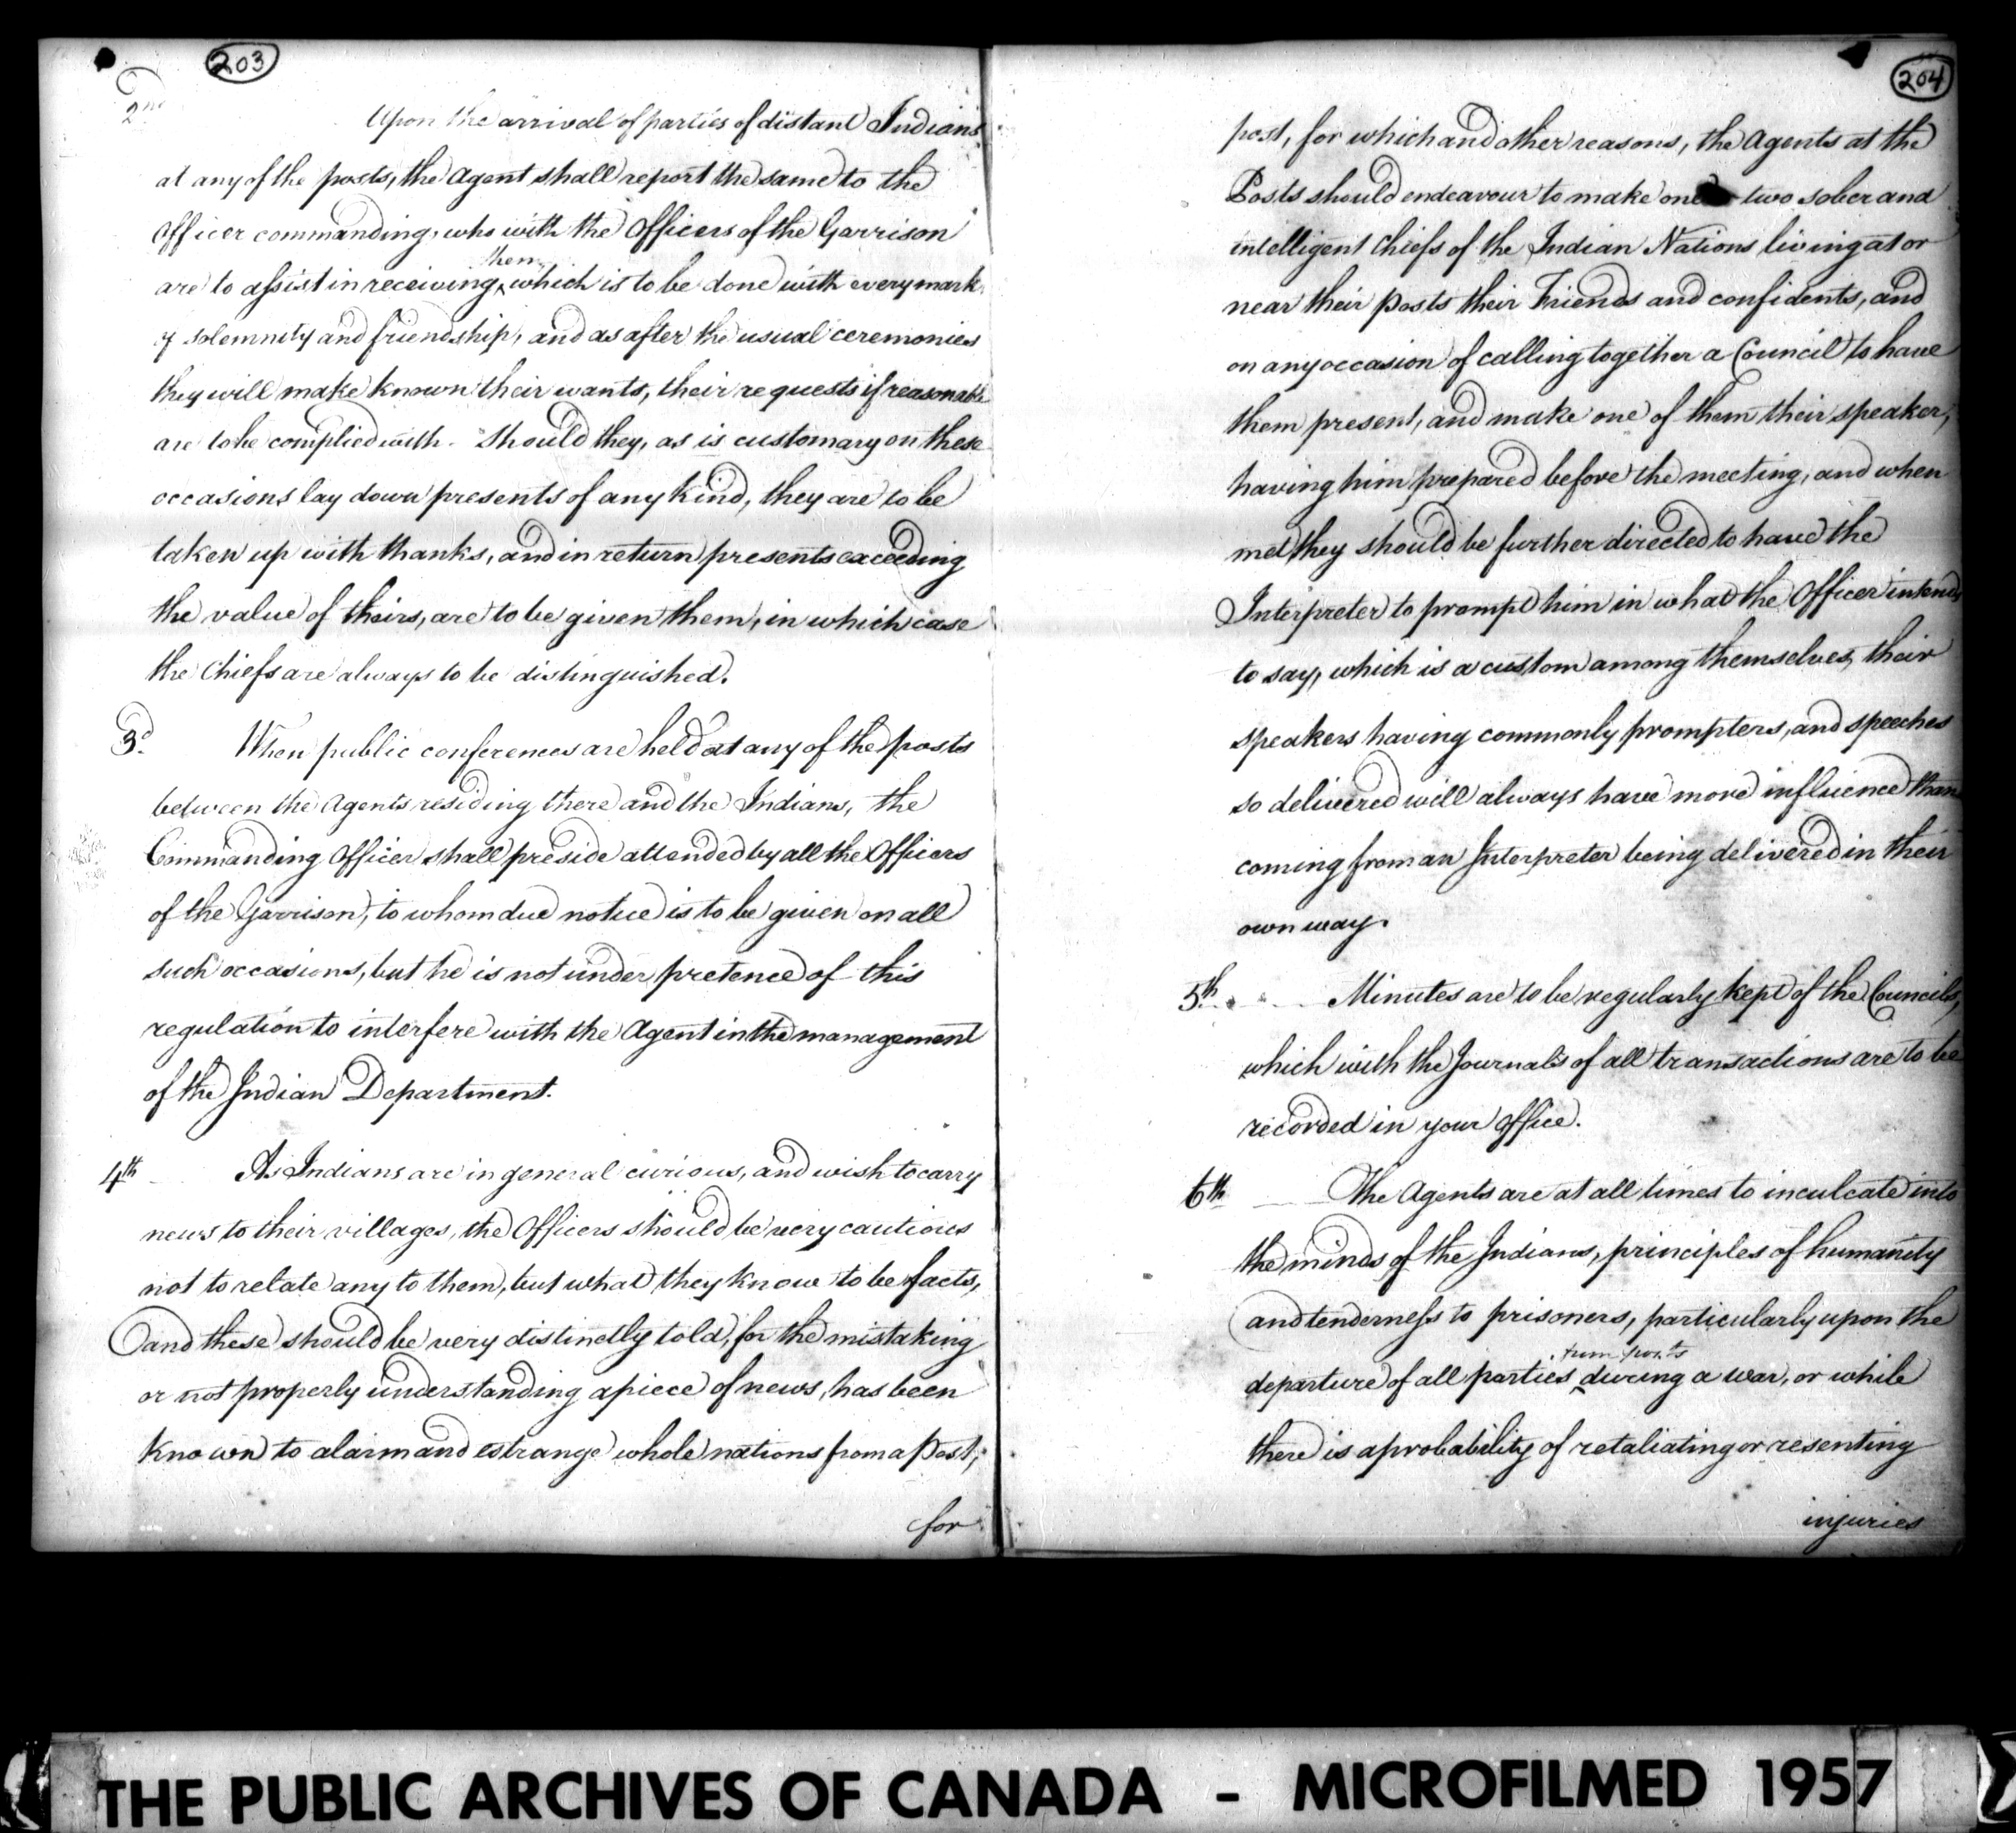 203
2nd Upon the arrival of parties of distant Indians
at any of the posts, the Agent shall report the same to the
Officer commanding, who with the Officers of the Garrison
them
are to assist in receiving ‸ which is to be done with every mark
of solemnity and friendship, and as after the usual ceremonies
they will make known their wants, their requests if reasonable
are to be complied with. Should they, as is customary on these
occasions lay down presents of any kind, they are to be
taken up with thanks, and in return presents exceeding
the value of theirs, are to be given them, in which case
the Chiefs are always to be distinguished.
3d. When public conferences are held at any of the posts
between the Agents residing there and the Indians, the
Commanding Officer shall preside attended by all the Officers
of the Garrison, to whom due notice is to be given on all
such occasions, but he is not under pretence of this
regulation to interfere with the Agent in the management
of the Indian Department.
4th As Indians are in general curious, and wish to carry
news to their villages, the Officers should be very cautious
not to relate any to them, but what they know to be facts,
and these should be very distinctly told, for the mistaking
or not properly understanding a piece of news, has been
known to alarm and estrange whole nations from a Post;
for
204
post, for which and other reasons, the Agents at the
Posts should endeavour to make one two sober and
intelligent Chiefs of the Indian Nations living at or
near their posts their Friends and confidents, and
on any occasion of calling together a Council to have
them present, and make one of them their speaker,
having him prepared before the meeting, and when
met they should be further directed to have the
Interpreter to prompt him in what the Officer intends
to say, which is a custom among themselves, their
speakers having commonly prompters, and speeches
so delivered will always have more influence than
coming from an Interpreter being delivered in their
own way.
5th. Minutes are to be regularly kept of the Councils,
which with the Journals of all transactions are to be
recorded in your Office.
6th The Agents are at all times to inculcate into
the minds of the Indians, principles of humanity
and tenderness to prisoners, particularly upon the
from posts
departure of all parties ‸ during a war, or while
there is a probability of retaliating or resenting
injuries
THE PUBLIC ARCHIVES OF CANADA - MICROFILMED 1957